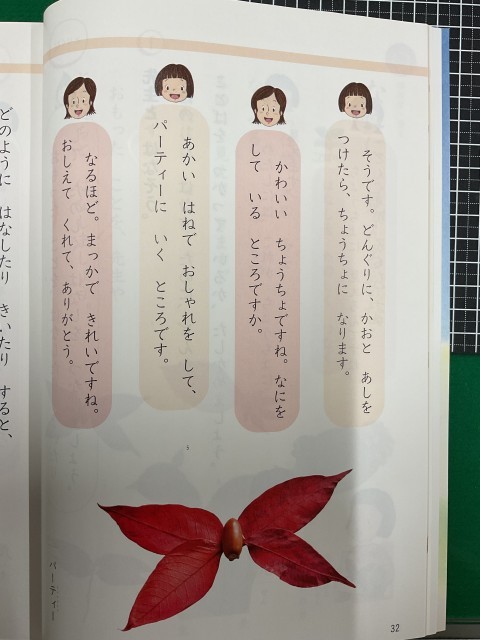 そうです。どんぐりに、かおと　あしを
つけたら、ちょうちょに　なります。
かわいい　ちょうちょですね。なにを
して　いる　ところですか。
あかい　はねで　おしゃれを　して、
パーティーに　いく　ところです。
なるほど。まっかで　きれいですね。
おしえて　くれて、ありがとう。
パーティー
32
どのように　はなしたり　きいたり　すると、